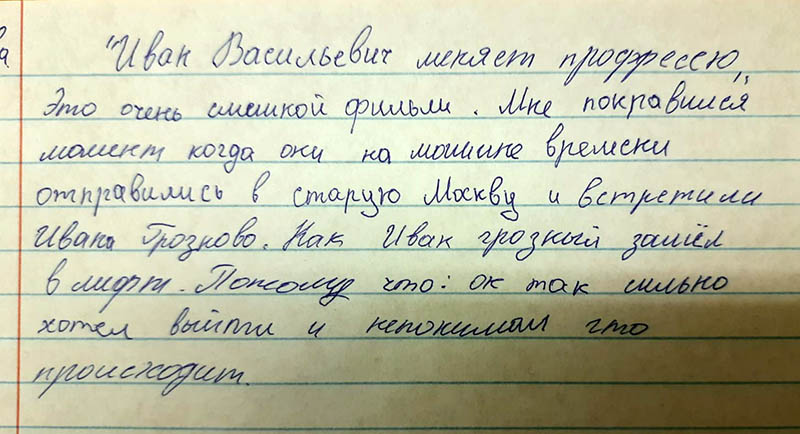 "Иван Васильевич меняет профрессею"
Это очень смешной фильми. Мне понравился
момент когда они на машине времени
отправились в старую Москву и встретили
Ивана Грозново. Как Иван грозный зашёл
в лифт. Потому что: он так сильно
хотел выйти и непонимал что
происходит.